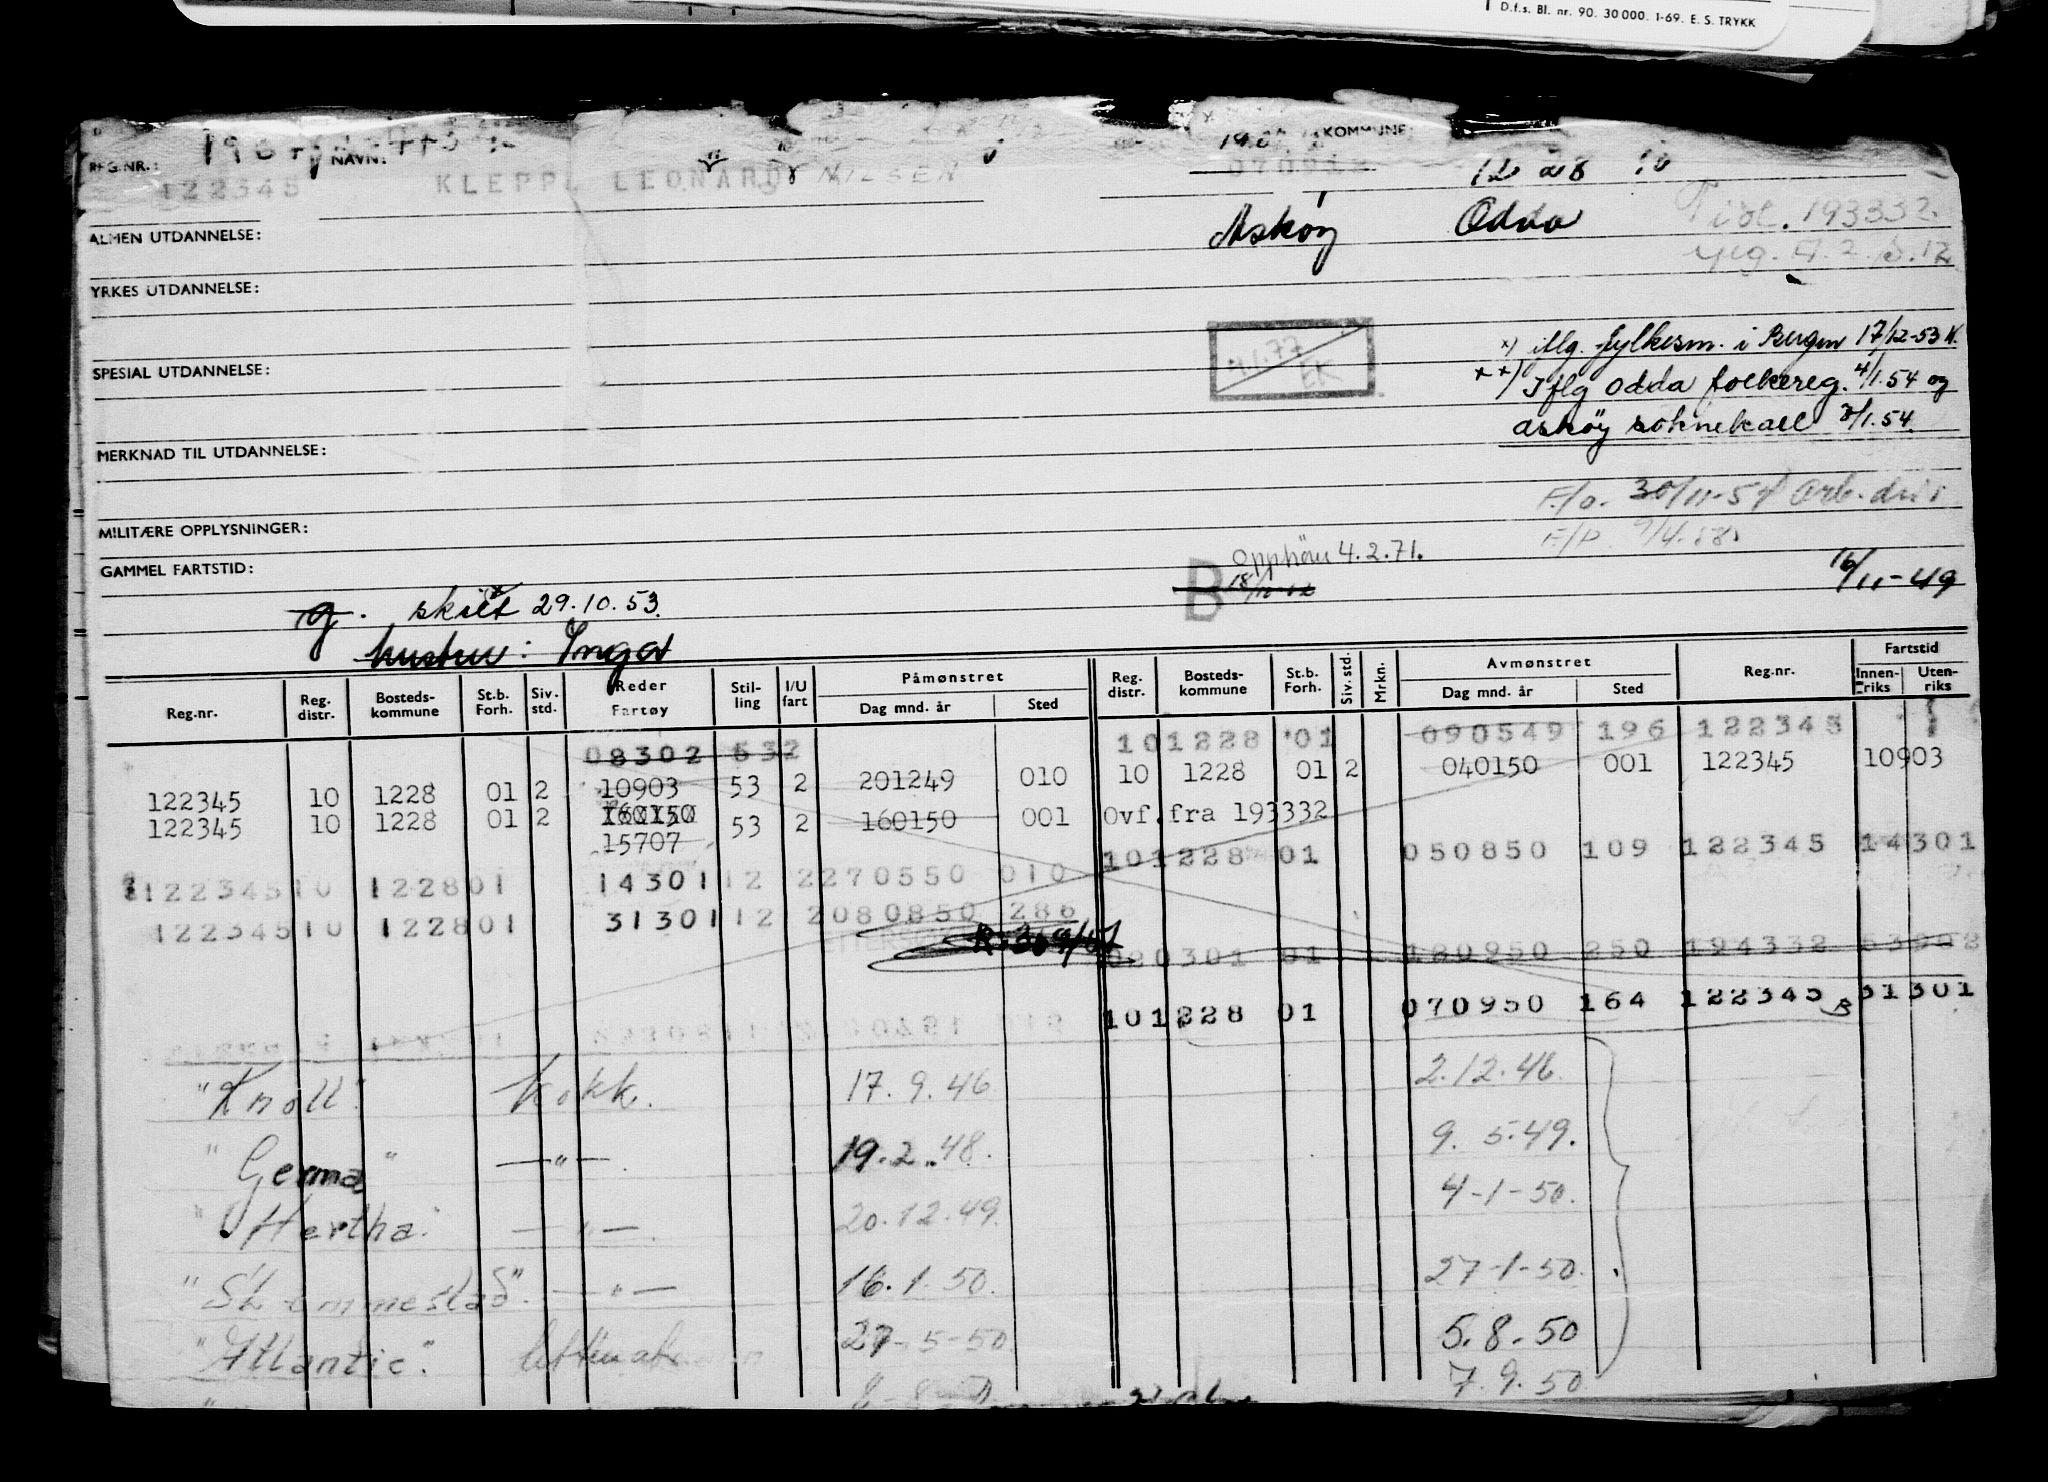 D.f.s. Bl. nr. 90. 30 000. 1-69. E. S. TRYKK
REG.NR.: NAVN: KOMMUNE:
122345 KLEPP, LEONARD NILSEN 070912 12 28
Askøy Odda
Tidl. 193332.
ALMEN UTDANNELSE:
YRKES UTDANNELSE:
x) iflg. fylkesm. i Bergen 17/12-53 K.
SPESIAL UTDANNELSE: 4.1.77 EK
xx) Iflg Odda folkereg. 4/1.54 og
Askøy soknekall 8/1.54.
MERKNAD TIL UTDANNELSE:
MILITÆRE OPPLYSNINGER:
F/O. 30/11-57
F/P. 9/4.58
GAMMEL FARTSTID:
B Opphør 4.2.71.
16/11-49
g. skilt 29.10.53.
hustru: Inga
Reg.nr. Reg. distr. Bosteds-kommune St.b. Forh. Siv. std. Reder Fartøy Stil-ling I/U fart Påmønstret Dag mnd. år Sted Reg. distr. Bosteds-kommune St.b. Forh. Siv. std. Mrkn. Avmønstret Dag mnd. år Sted Reg.nr. Fartstid Innen-riks Uten-riks
08302 532 10 1228 01 090549 196 122345
122345 10 1228 01 2 10903 53 2 201249 010 10 1228 01 2 040150 001 122345 10903
122345 10 1228 01 2 160150 15707 53 2 160150 001 Ovf. fra 193332
122345 10 1228 01 14301 12 2 270550 010 10 1228 01 050850 109 122345 14301
122345 10 1228 01 31301 12 2 080850 286
020301 01 180950 250 194332
10 1228 01 070950 164 122345 31301
"Knoll". kokk. 17. 9. 46 2.12.46.
"Germa" —"—. 19.2.48. 9. 5.49.
"Hertha" —"—. 20.12.49. 4-1-50.
"Stemmestad". —"— 16.1.50. 27-1-50.
"Atlantic". lettmatr 27-5-50 5.8.50
7.9.50